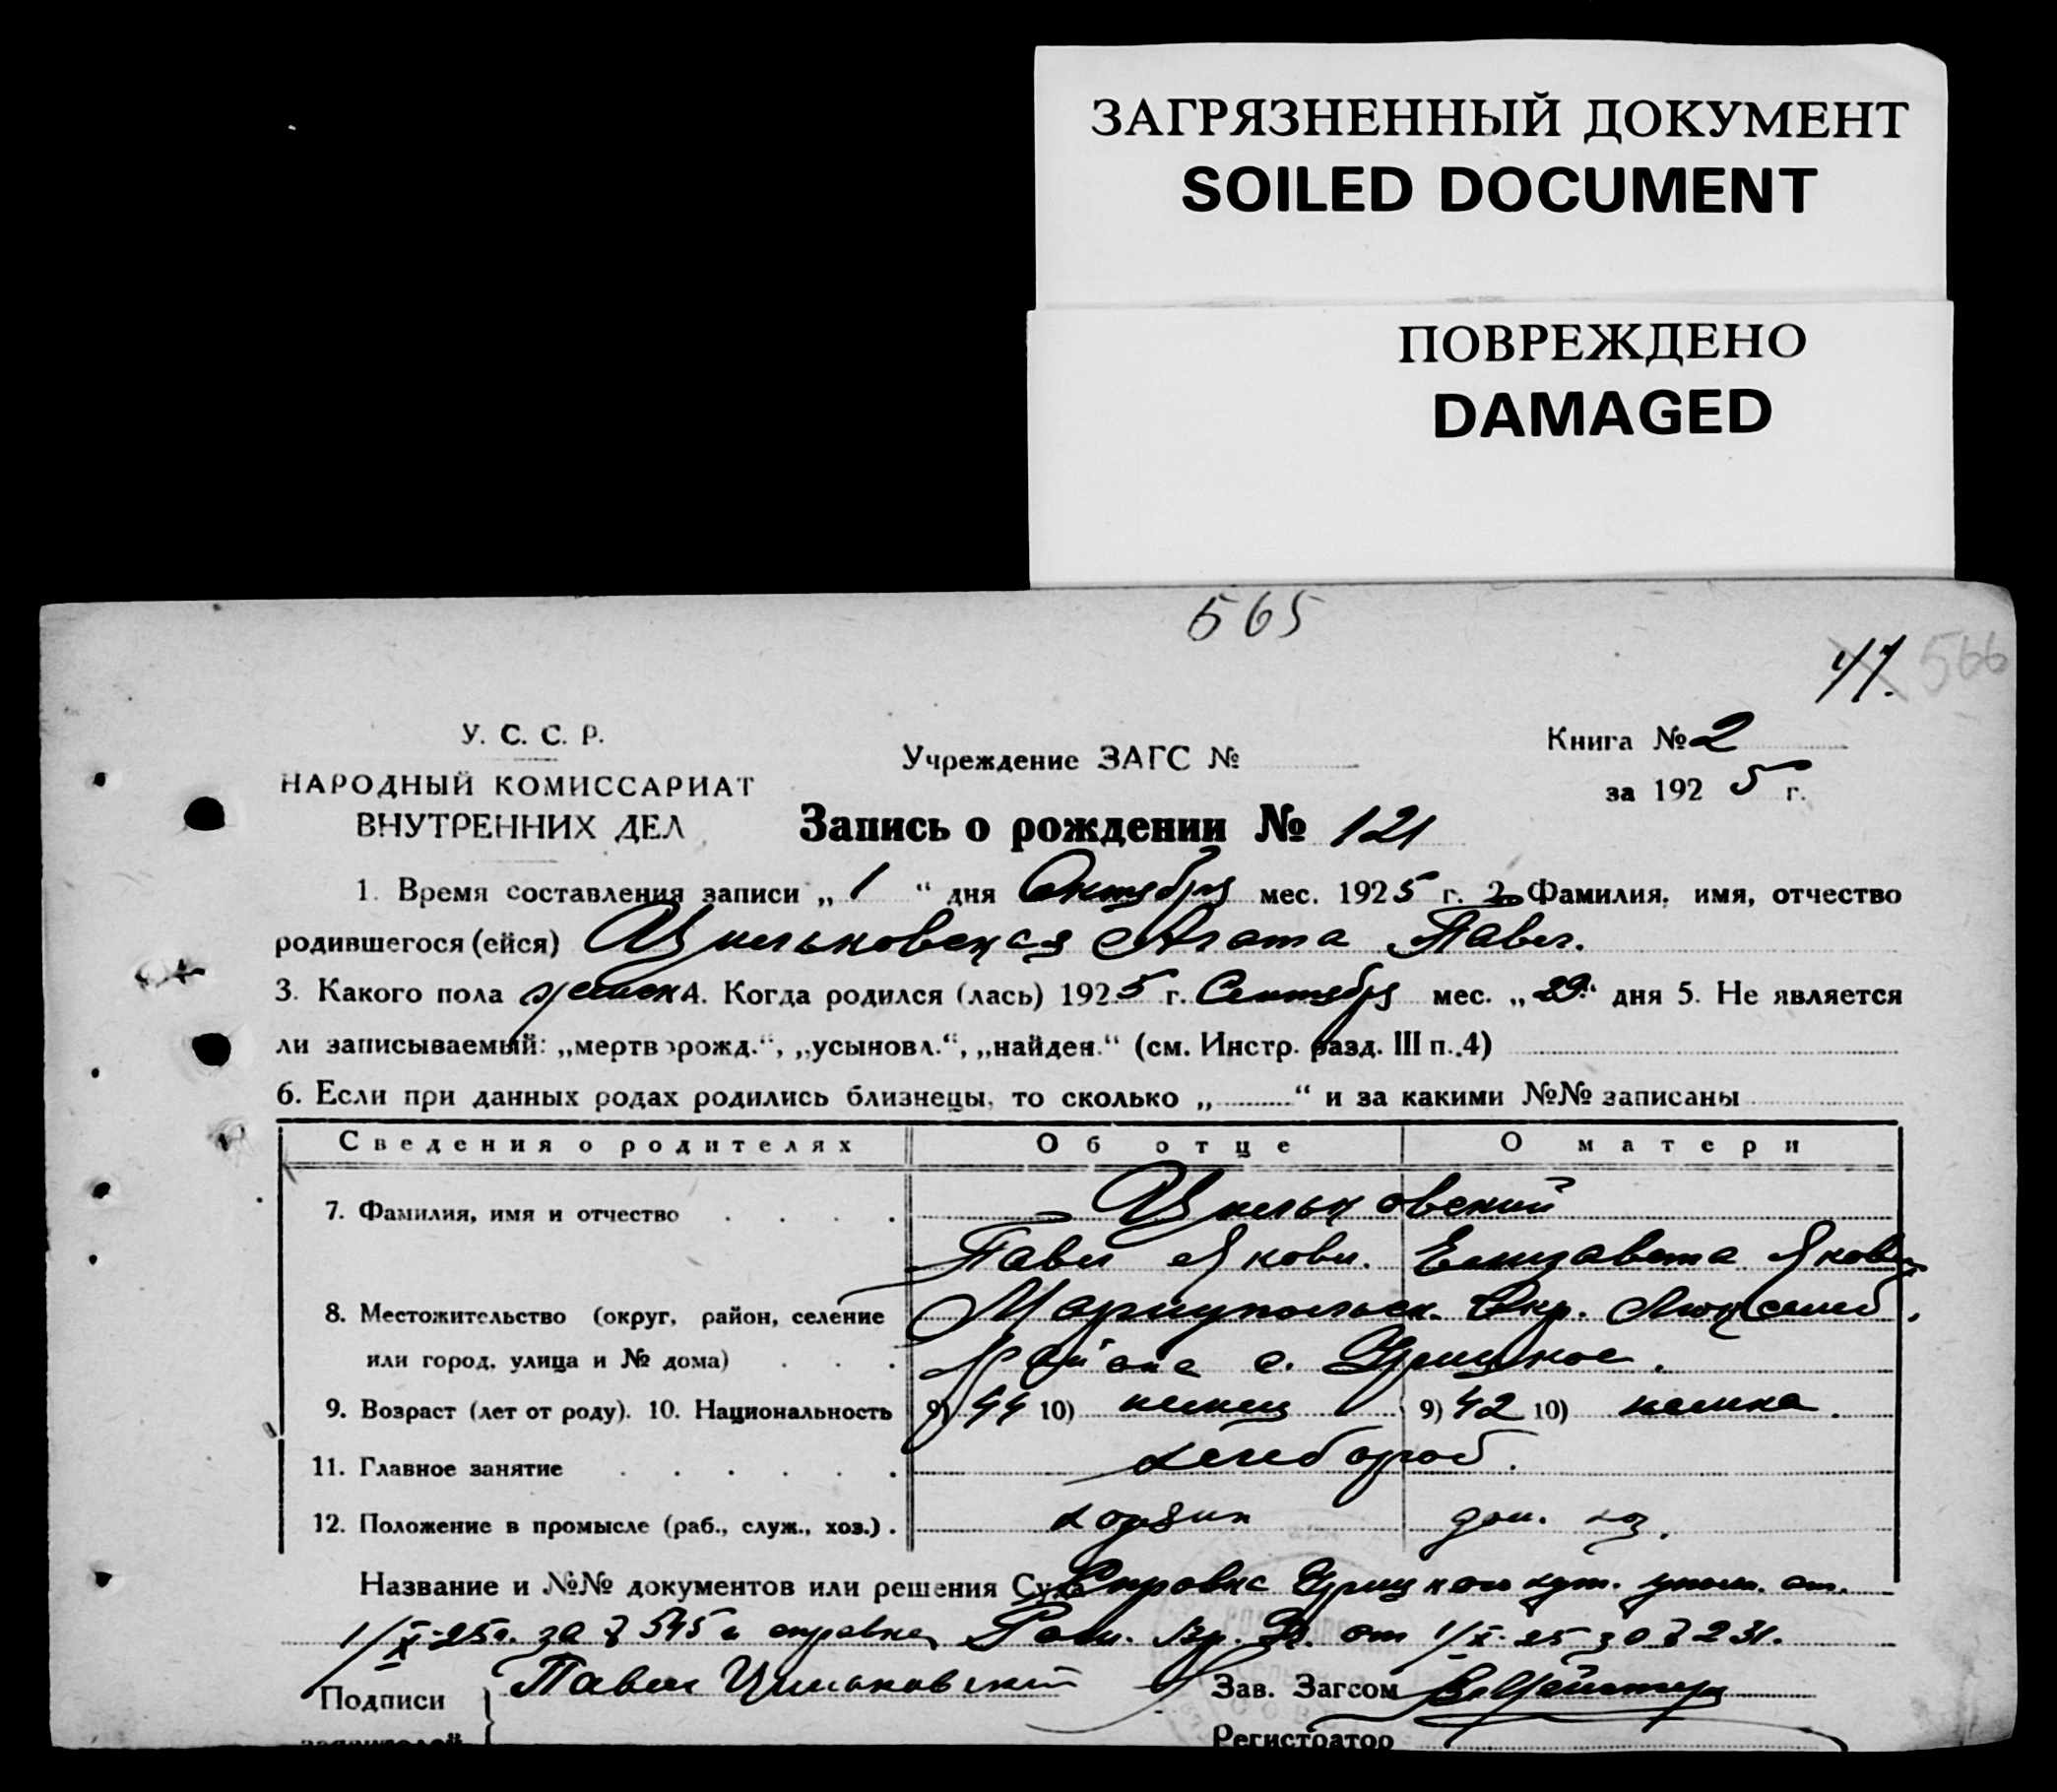 ЗАГРЯЗНЕННЫЙ ДОКУМЕНТ
SOILED DOCUMENT
ПОВРЕЖДЕНО
DAMAGED
565
41. 566
У. С. С. Р.
НАРОДНЫЙ КОМИССАРИАТ
ВНУТРЕННИХ ДЕЛ
Учреждение ЗАГС №
Книга № 2
за 1925 г.
Запись о рождении № 121
1. Время составления записи „ 1 “ дня Октября мес. 1925 г. 2. Фамилия, имя, отчество
родившегося (ейся) Цильковская Агата Павл.
3. Какого пола женск 4. Когда родился (лась) 1925 г. Сентября мес. „ 29 “ дня 5. Не является
ли записываемый: „мертворожд.“, „усыновл.“, „найден.“ (см. Инстр. разд. III п. 4)
6. Если при данных родах родились близнецы, то сколько „ “ и за какими №№ записаны
Сведения о родителях Об отце О матери
7. Фамилия, имя и отчество Цильковский
Павел Яковл. Елизавета Яковл.
8. Местожительство (округ, район, селение Мариупольск. Окр. Люксемб.
или город, улица и № дома) Района с. Урицкое.
9. Возраст (лет от роду). 10. Национальность 9) 44 10) немец 9) 42 10) немка.
11. Главное занятие хлебороб.
12. Положение в промысле (раб., служ., хоз.) хозяин дом. хоз.
Название и №№ документов или решения Суда Справка Урицкого от.
1/X-25г. за № 545 и справка от 1/X-25 за № 231.
Подписи Павел Цильковский Зав. Загсом
заявителей Регистратор